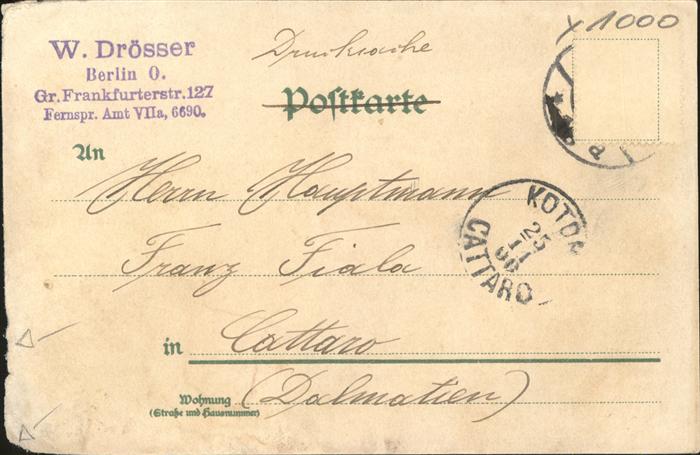 W. Drösser
Berlin O.
Gr. Frankfurterstr. 127
Fernspr. Amt VIIa, 6690.
Drucksache
x 1000
Postkarte
a
An
Herrn Hauptmann
Franz Fiala
in Cattaro
Wohnung (Dalmatien)
(Straße und Hausnummer)
KOTOR
25
11
CATTARO